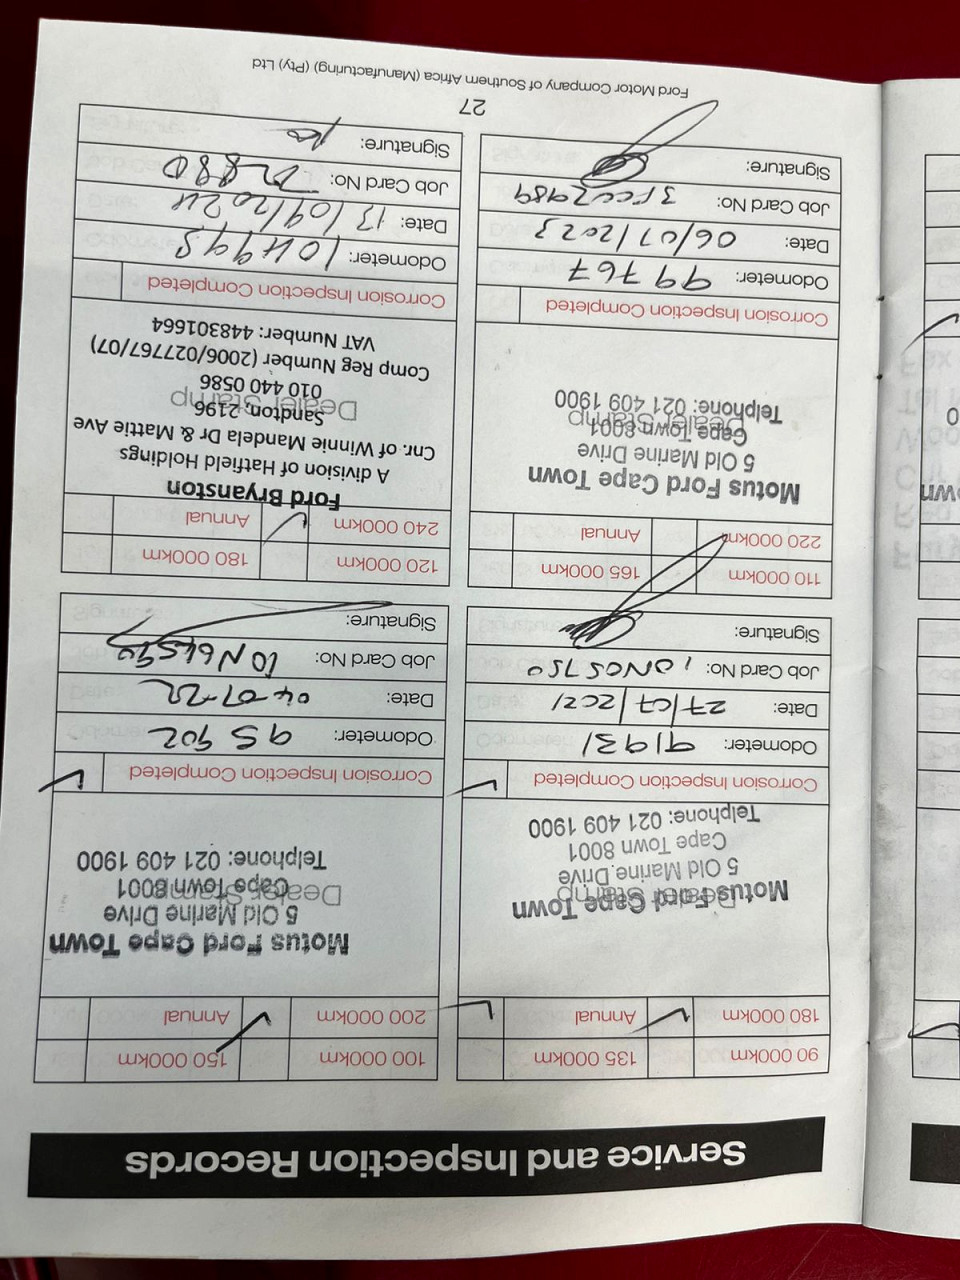 Service and Inspection Records
90 000km 135 000km
180 000km Annual
Dealer Stamp
Motus Ford Cape Town
5 Old Marine Drive
Cape Town 8001
Telphone: 021 409 1900
Corrosion Inspection Completed
Odometer: 91931
Date: 27/07/2021
Job Card No:
Signature:
100 000km 150 000km
200 000km Annual
Motus Ford Cape Town
5 Old Marine Drive
Cape Town 8001
Dealer Stamp
Telphone: 021 409 1900
Corrosion Inspection Completed
Odometer: 95 902
Date: 04-07-22
Job Card No:
Signature:
110 000km 165 000km
220 000km Annual
Motus Ford Cape Town
5 Old Marine Drive
Cape Town 8001
Dealer Stamp
Telphone: 021 409 1900
Corrosion Inspection Completed
Odometer: 99767
Date: 06/07/2023
Job Card No:
Signature:
120 000km 180 000km
240 000km Annual
Ford Bryanston
A division of Hatfield Holdings
Cnr. of Winnie Mandela & Dr Mattie Ave
Sandton, 2196
Dealer Stamp
010 440 0586
Comp Reg Number (2006/027767/07)
VAT Number: 448301664
Corrosion Inspection Completed
Odometer: 104995
Date: 13/09/2024
Job Card No:
Signature:
27
Ford Motor Company of Southern Africa (Manufacturing) (Pty) Ltd